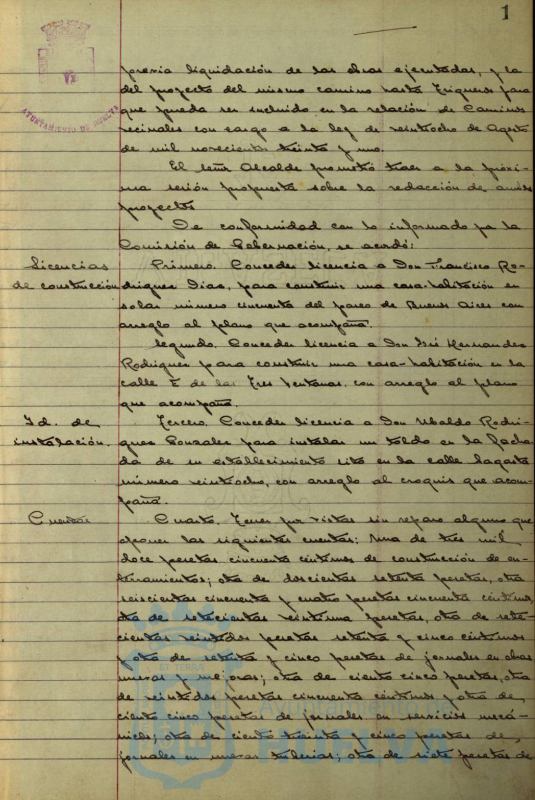 1
AYUNTAMIENTO DE HUELVA
previa liquidación de las obras ejecutadas, y la
del proyecto del mismo camino hasta Trigueros para
que pueda ser incluido en la relación de Caminos
vecinales con cargo a la ley de veintiocho de Agosto
de mil novecientos treinta y uno.
El señor Alcalde prometió traer a la próxi-
ma sesión propuesta sobre la redacción de ambos
proyectos
De conformidad con lo informado por la
Comisión de Gobernación, se acordó:
Licencias
de construcción
Primero. Conceder licencia a Don Francisco Ro-
driguez Diaz, para construir una casa-habitación en
solar número cincuenta del paseo de Buenos Aires con
arreglo al plano que acompaña.
Segundo. Conceder licencia a Don José Hernandez
Rodriguez para construir una casa-habitación en la
calle E de las Tres Ventanas, con arreglo al plano
que acompaña.
Id. de
instalación.
Tercero. Conceder licencia a Don Ubaldo Rodri-
guez Gonzalez para instalar un toldo en la facha-
da de su establecimiento sito en la calle Sagasta
número veintiocho, con arreglo al croquis que acom-
paña.
Cuentas
Cuarto. Tener por vistas sin reparo alguno que
oponer las siguientes cuentas: Una de tres mil
doce pesetas cincuenta céntimos de construcción de en-
terramientos; otra de doscientas setenta pesetas, otra
seiscientas cincuenta y cuatro pesetas cincuenta céntimos
otra de setecientas veintiuna pesetas, otra de sete-
cientas veintidos pesetas setenta y cinco céntimos
y otra de setenta y cinco pesetas de jornales en obras
nuevas y mejoras; otra de ciento cinco pesetas, otra
de veintidos pesetas cincuenta céntimos y otra de
ciento cinco pesetas de jornales en servicios mecá-
nicos; otra de ciento treinta y cinco pesetas de
jornales en nuevas tuberias; otra de siete pesetas de
Ayuntamiento de
HUELVA